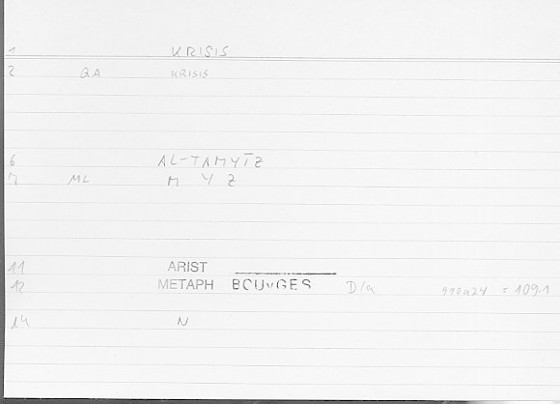 1 KRISIS
2 QA KRISIS
6 AL-TAMYĪZ
7 ML M Y Z
11 ARIST
12 METAPH BOUYGES D/a 990a24 = 109.1
14 N